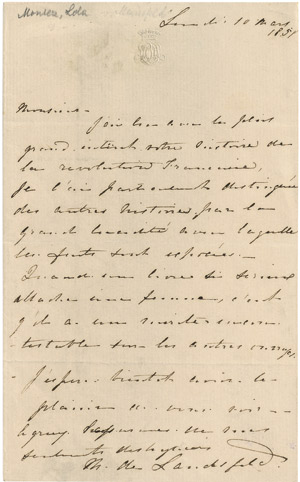 Montez, Lola
Lundi 10 Mars
1851
Monsieur
J'ai lu avec le plus
grand intérêt votre histoire de
la revolution Francaise,
Je l'ai particulierement distinguée
des autres histoires, par la
grande lucidité avec laquelle
les faits sont exposées –
Quand un livre si serieux
attache une femme, c'est
qu'il a un mérite incon-
testable sur les autres ouvrages.
J'espere bientot avoir le
plaisir de vous voir
de mes
sentiments distingués
M. de Landsfeld